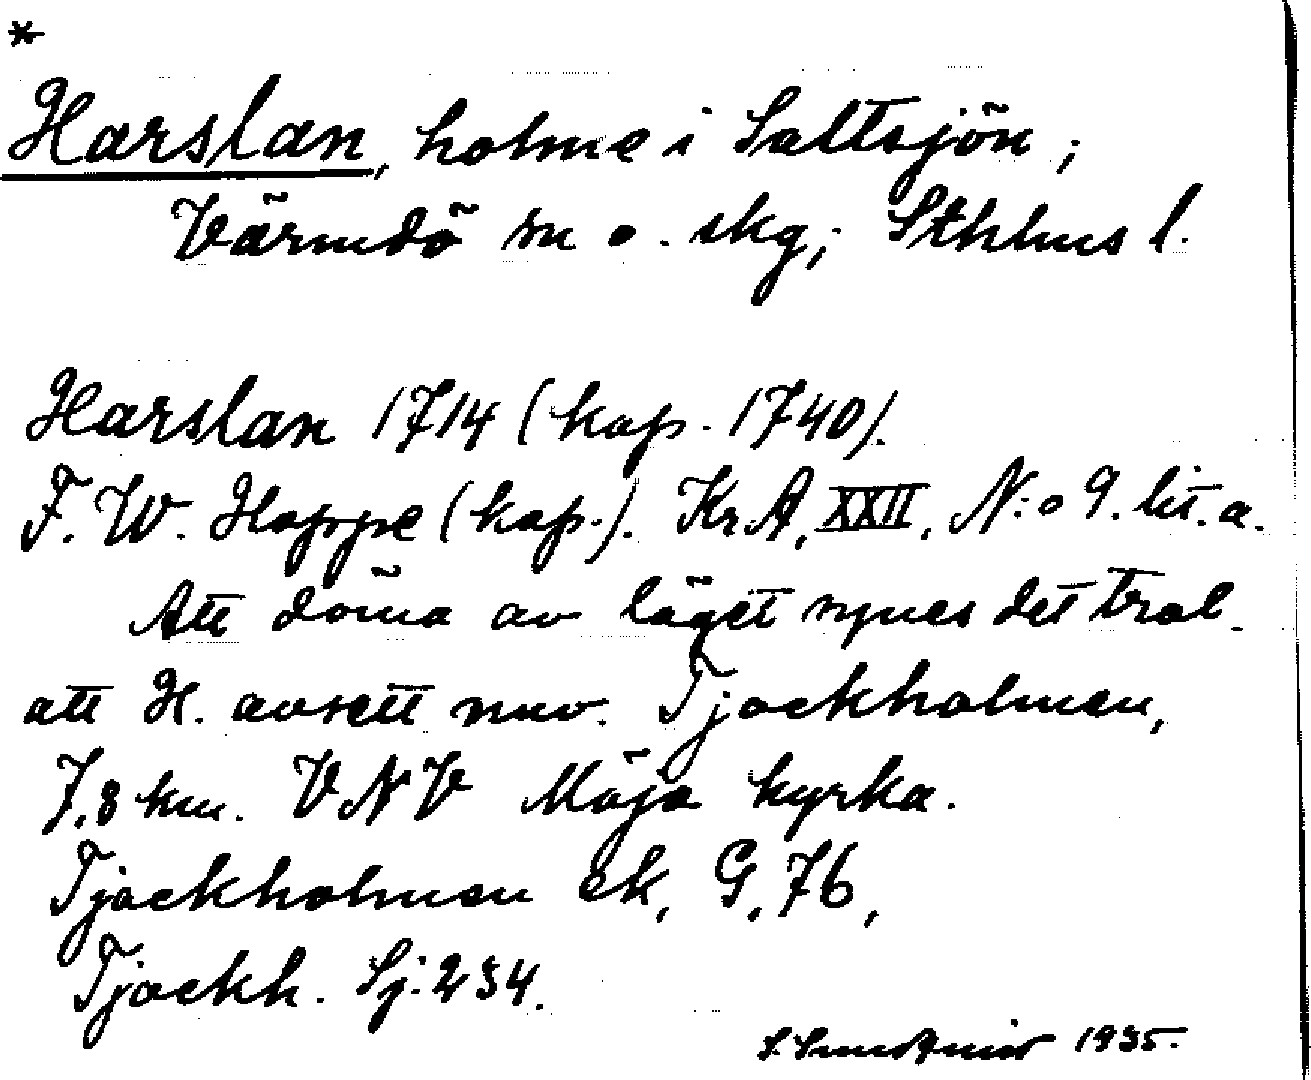 *
Harslan, holme i Saltsjön;
Värmdö sn o. skg; Sthlms l.
Harslan 1714 (kop. 1740).
F. W. Hoppe (kop.). Kr A, XXII, N:o 9. lit. a.
Att döma av läget synes det trol.
att H. avsett nuv. Tjockholmen,
7,8 km. VNV Möja kyrka.
Tjockholmen ek, G, 76,
Tjockh. Sj. 234.
1935.